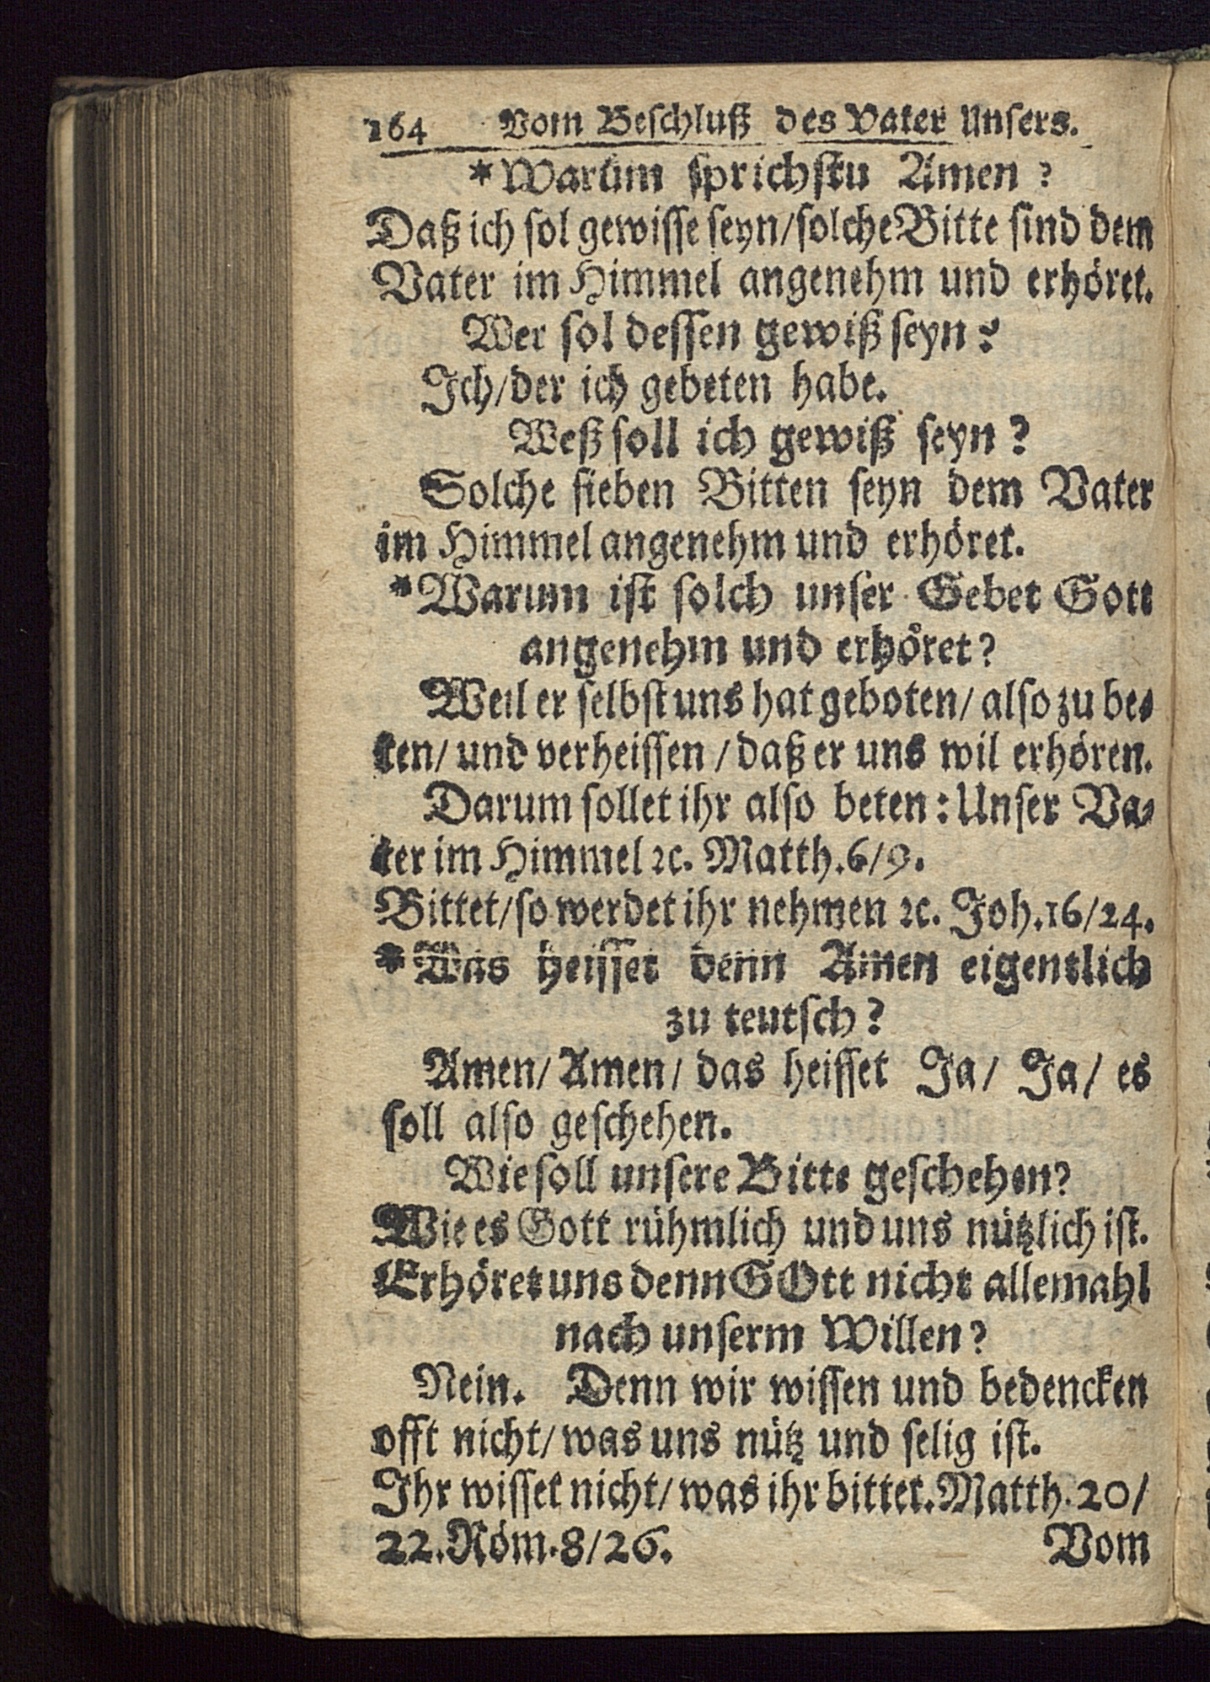 164 Vom Beschluß des Vater Unsers.
*Warum sprichstu Amen?
Daß ich sol gewisse seyn/solche Bitte sind dem
Vater im Himmel angenehm und erhöret.
Wer sol dessen gewiß seyn?
Ich/der ich gebeten habe.
Weß soll ich gewiß seyn?
Solche sieben Bitten seyn dem Vater
im Himmel angenehm und erhöret.
*Warum ist solch unser Gebet Gott
angenehm und erhöret?
Weil er selbst uns hat geboten/ also zu be-
ten/ und verheissen / daß er uns wil erhören.
Darum sollet ihr also beten: Unser Va-
ter im Himmel ꝛc. Matth.6/9.
Bittet/so werdet ihr nehmen ꝛc. Joh.16/24.
*Was heisset denn Amen eigentlich
zu teutsch?
Amen/ Amen/ das heisset Ja/ Ja/ es
soll also geschehen.
Wie soll unsere Bitte geschehen?
Wie es Gott rühmlich und uns nützlich ist.
Erhöret uns denn GOtt nicht allemahl
nach unserm Willen?
Nein. Denn wir wissen und bedencken
offt nicht/was uns nütz und selig ist.
Ihr wisset nicht/was ihr bittet.Matth.20/
22.Röm.8/26. Vom